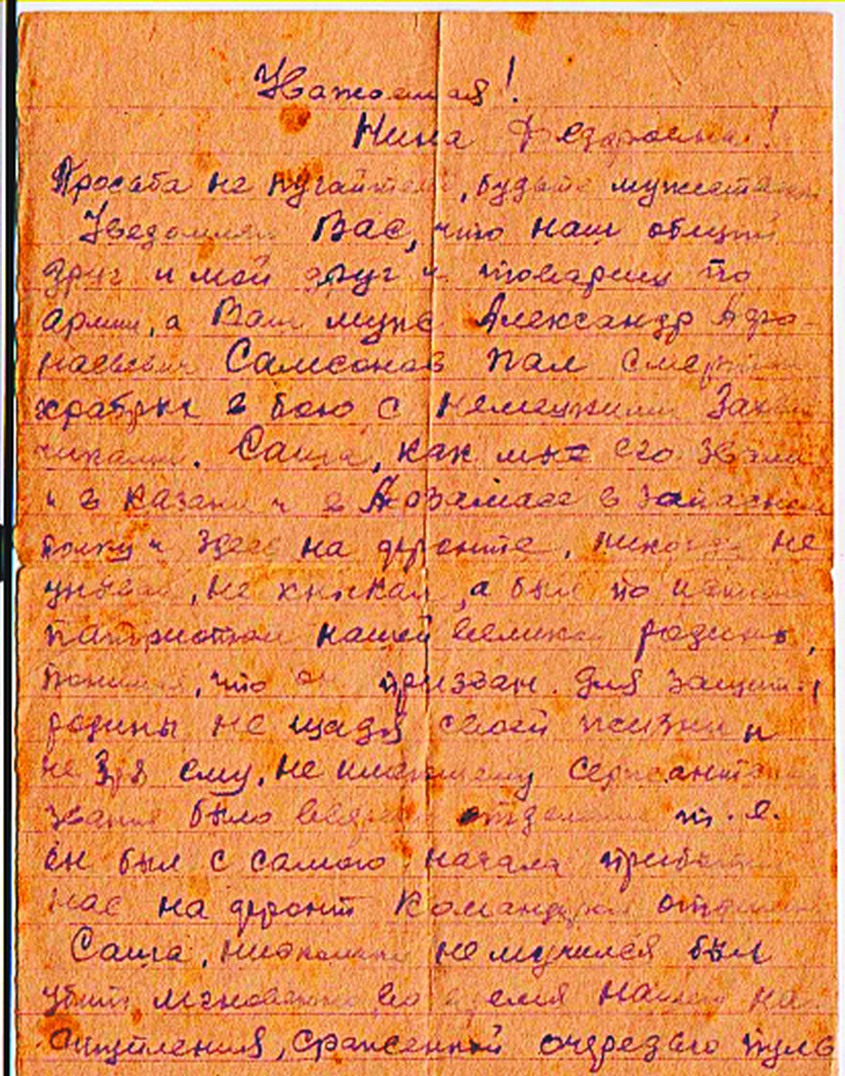 Уважаемая!
Нина Федоровна!
Просьба не пугайтесь, будьте мужествен
Уведомляем Вас, что наш общий
друг и мой друг и товарищ по
армии, а Ваш муж Александр
Самсонов пал смертью
храбрых в бою с немецкими Захват
чиками. Саша, как мы его звали
и в Казани и в Арзамасе в запасном
полку и здесь на фронте, никогда не
унывал, не хныкал, а был
патриотом нашей великой родины,
что он призван для защиты
родины не щадя своей жизни и
не зря ему, не имеющему сержантского
звания было вверено отделение т. е.
он был с самого начала прибытия
нас на фронт Командиром отделения
Саша, нисколько не мучился был
убит мгновенно во время нашего на
ступления, сраженный очередью пуль